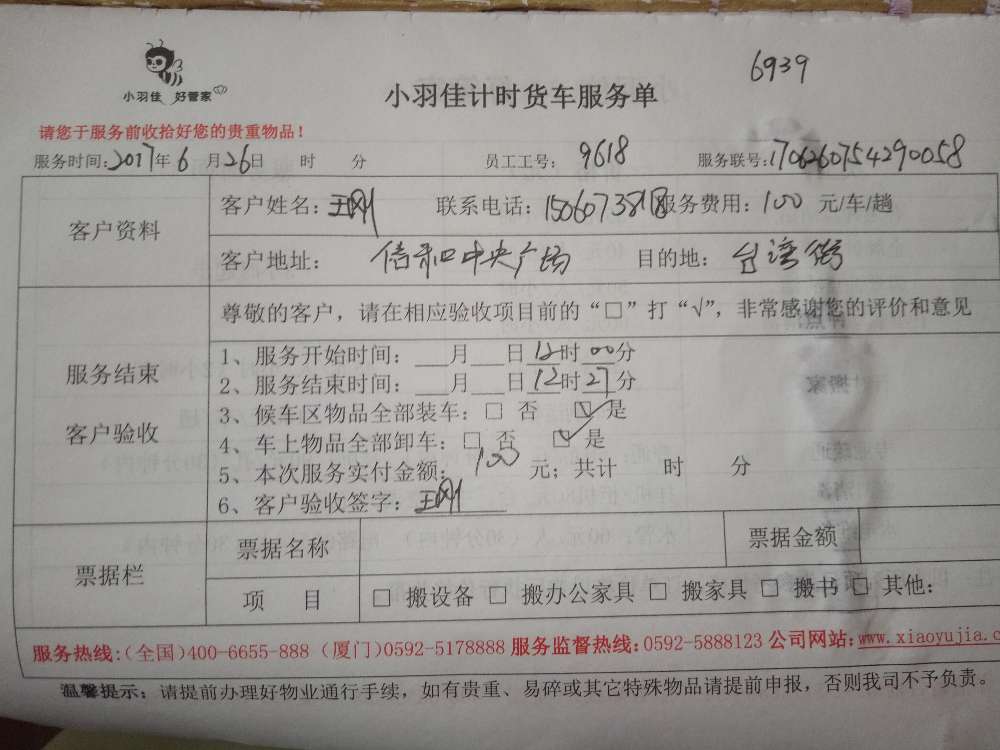 6939
小羽佳 好管家
小羽佳计时货车服务单
请您于服务前收拾好您的贵重物品！
服务时间：2017年6月26日 时 分 员工工号：9618 服务联号：1706260754290058
客户资料
客户姓名：王刚 联系电话：15060738818 服务费用：100 元/车/趟
客户地址：信和中央广场 目的地：台湾街
服务结束
客户验收
尊敬的客户，请在相应验收项目前的“□”打“√”，非常感谢您的评价和意见
1、服务开始时间：___月___日12时00分
2、服务结束时间：___月___日12时27分
3、候车区物品全部装车：□ 否 ☑ 是
4、车上物品全部卸车：□ 否 ☑ 是
5、本次服务实付金额：100 元；共计 时 分
6、客户验收签字：王刚
票据栏
票据名称 票据金额
项 目 □ 搬设备 □ 搬办公家具 □ 搬家具 □ 搬书 □ 其他：
服务热线：(全国)400-6655-888 (厦门)0592-5178888 服务监督热线：0592-5888123 公司网站：www.xiaoyujia.c
温馨提示：请提前办理好物业通行手续，如有贵重、易碎或其它特殊物品请提前申报，否则我司不予负责。